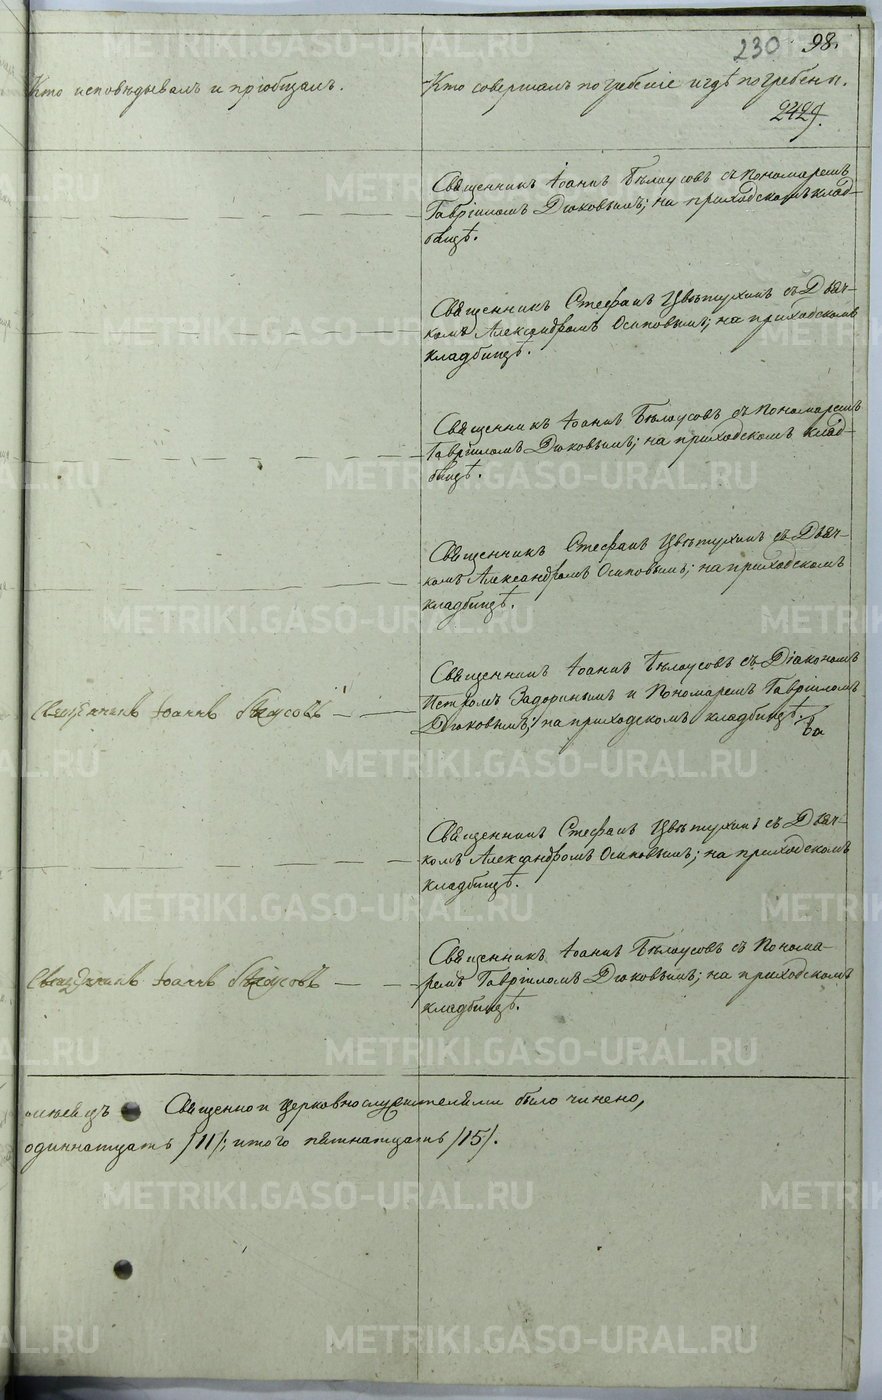 230 98.
Кто исповѣдывалъ и пріобщалъ.
Кто совершалъ погребеніе и гдѣ погребены.
2429.
Священникъ Іоаннъ Бѣлоусовъ съ Пономаремъ
Гавріиломъ Дюковымъ; на приходскомъ клад-
бищѣ.
Священникъ Стефанъ Цвѣтухинъ съ Дьяч-
комъ Александромъ Осиповымъ; на приходскомъ
кладбищѣ.
Священникъ Іоаннъ Бѣлоусовъ съ Пономаремъ
Гавріиломъ Дюковымъ; на приходскомъ клад-
бищѣ.
Священникъ Стефанъ Цвѣтухинъ съ Дьяч-
комъ Александромъ Осиповымъ; на приходскомъ
кладбищѣ.
Священникъ Іоаннъ Бѣлоусовъ
Священникъ Іоаннъ Бѣлоусовъ съ Діакономъ
Петромъ Задоринымъ и Пономаремъ Гавріиломъ
Дюковымъ; на приходскомъ кладбищѣ.
Священникъ Стефанъ Цвѣтухинъ съ Дьяч-
комъ Александромъ Осиповымъ; на приходскомъ
кладбищѣ.
Священникъ Іоаннъ Бѣлоусовъ
Священникъ Іоаннъ Бѣлоусовъ съ Понома-
ремъ Гавріиломъ Дюковымъ; на приходскомъ
кладбищѣ.
Священно и церковнослужителями было чинено,
одиннатцать /11/; итого пятнатцать /15/.
METRIKI.GASO-URAL.RU